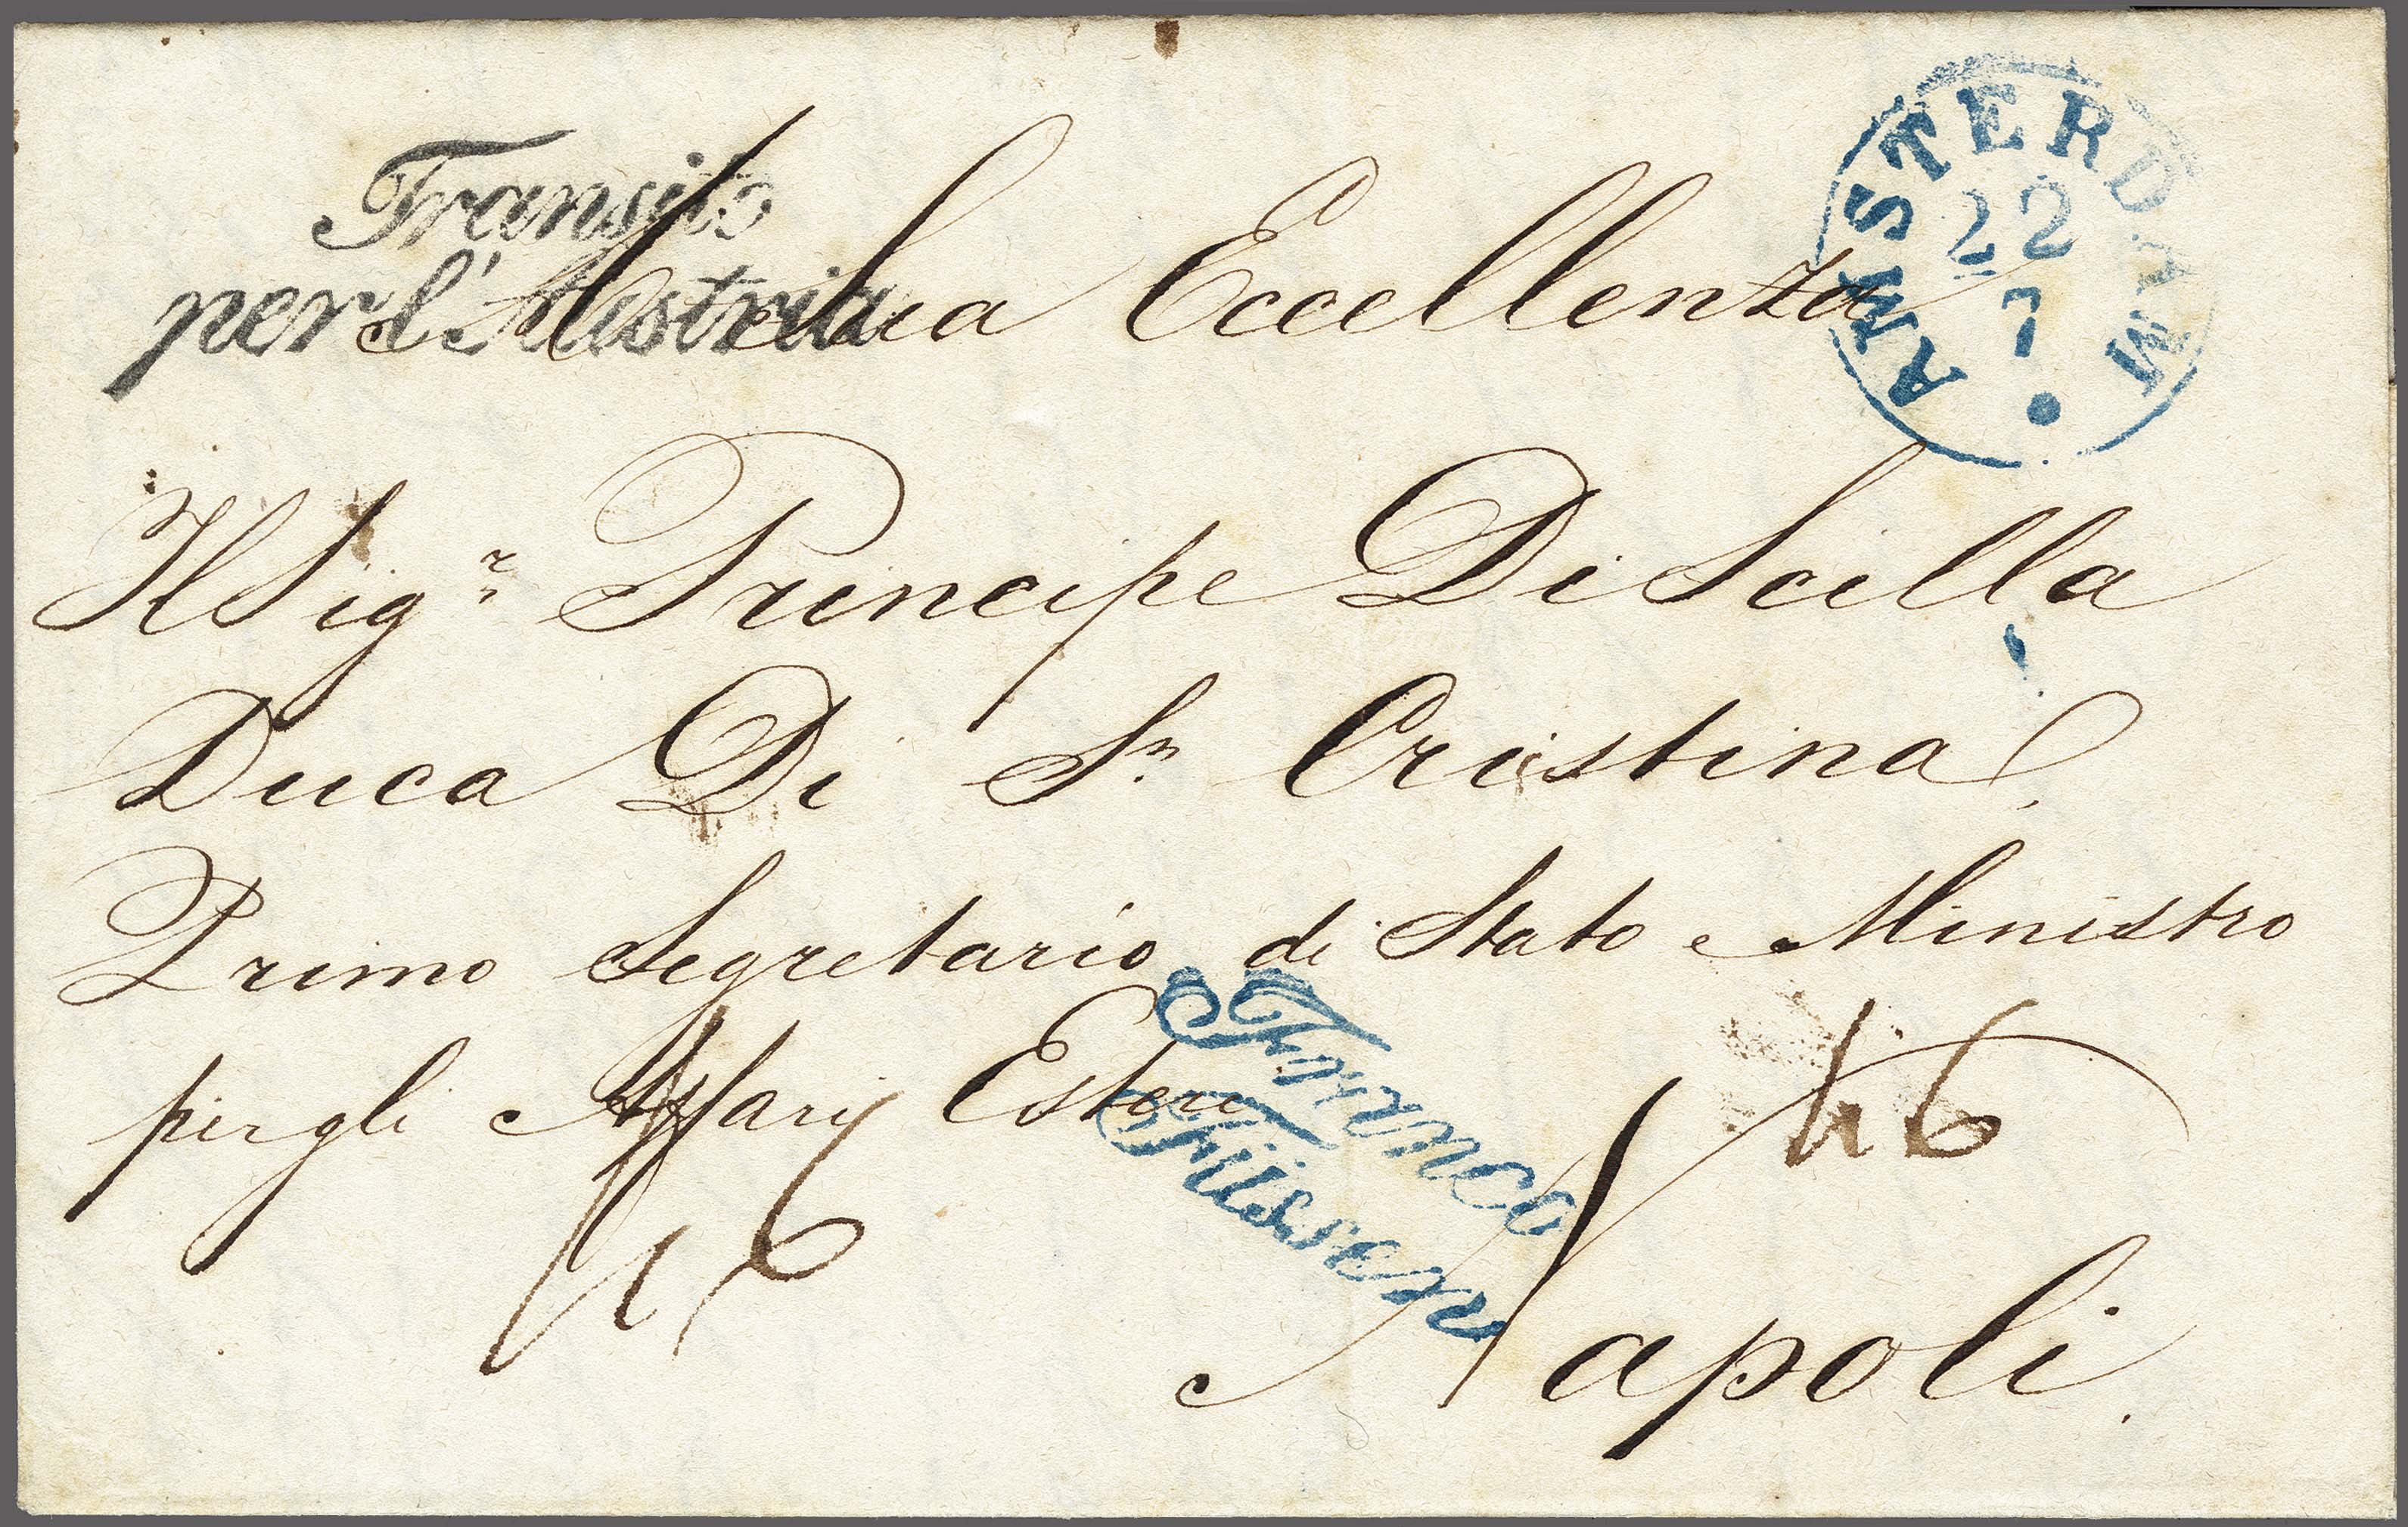 Transito
per l'Austria
A Sua Eccellenza
AMSTERDAM
22
7
Il Sigr Principe Di Scilla
Duca Di Sn Cristina
Primo Segretario di Stato e Ministro
per gli Affarj Esteri
Franco
Füssen
46
46
Napoli.